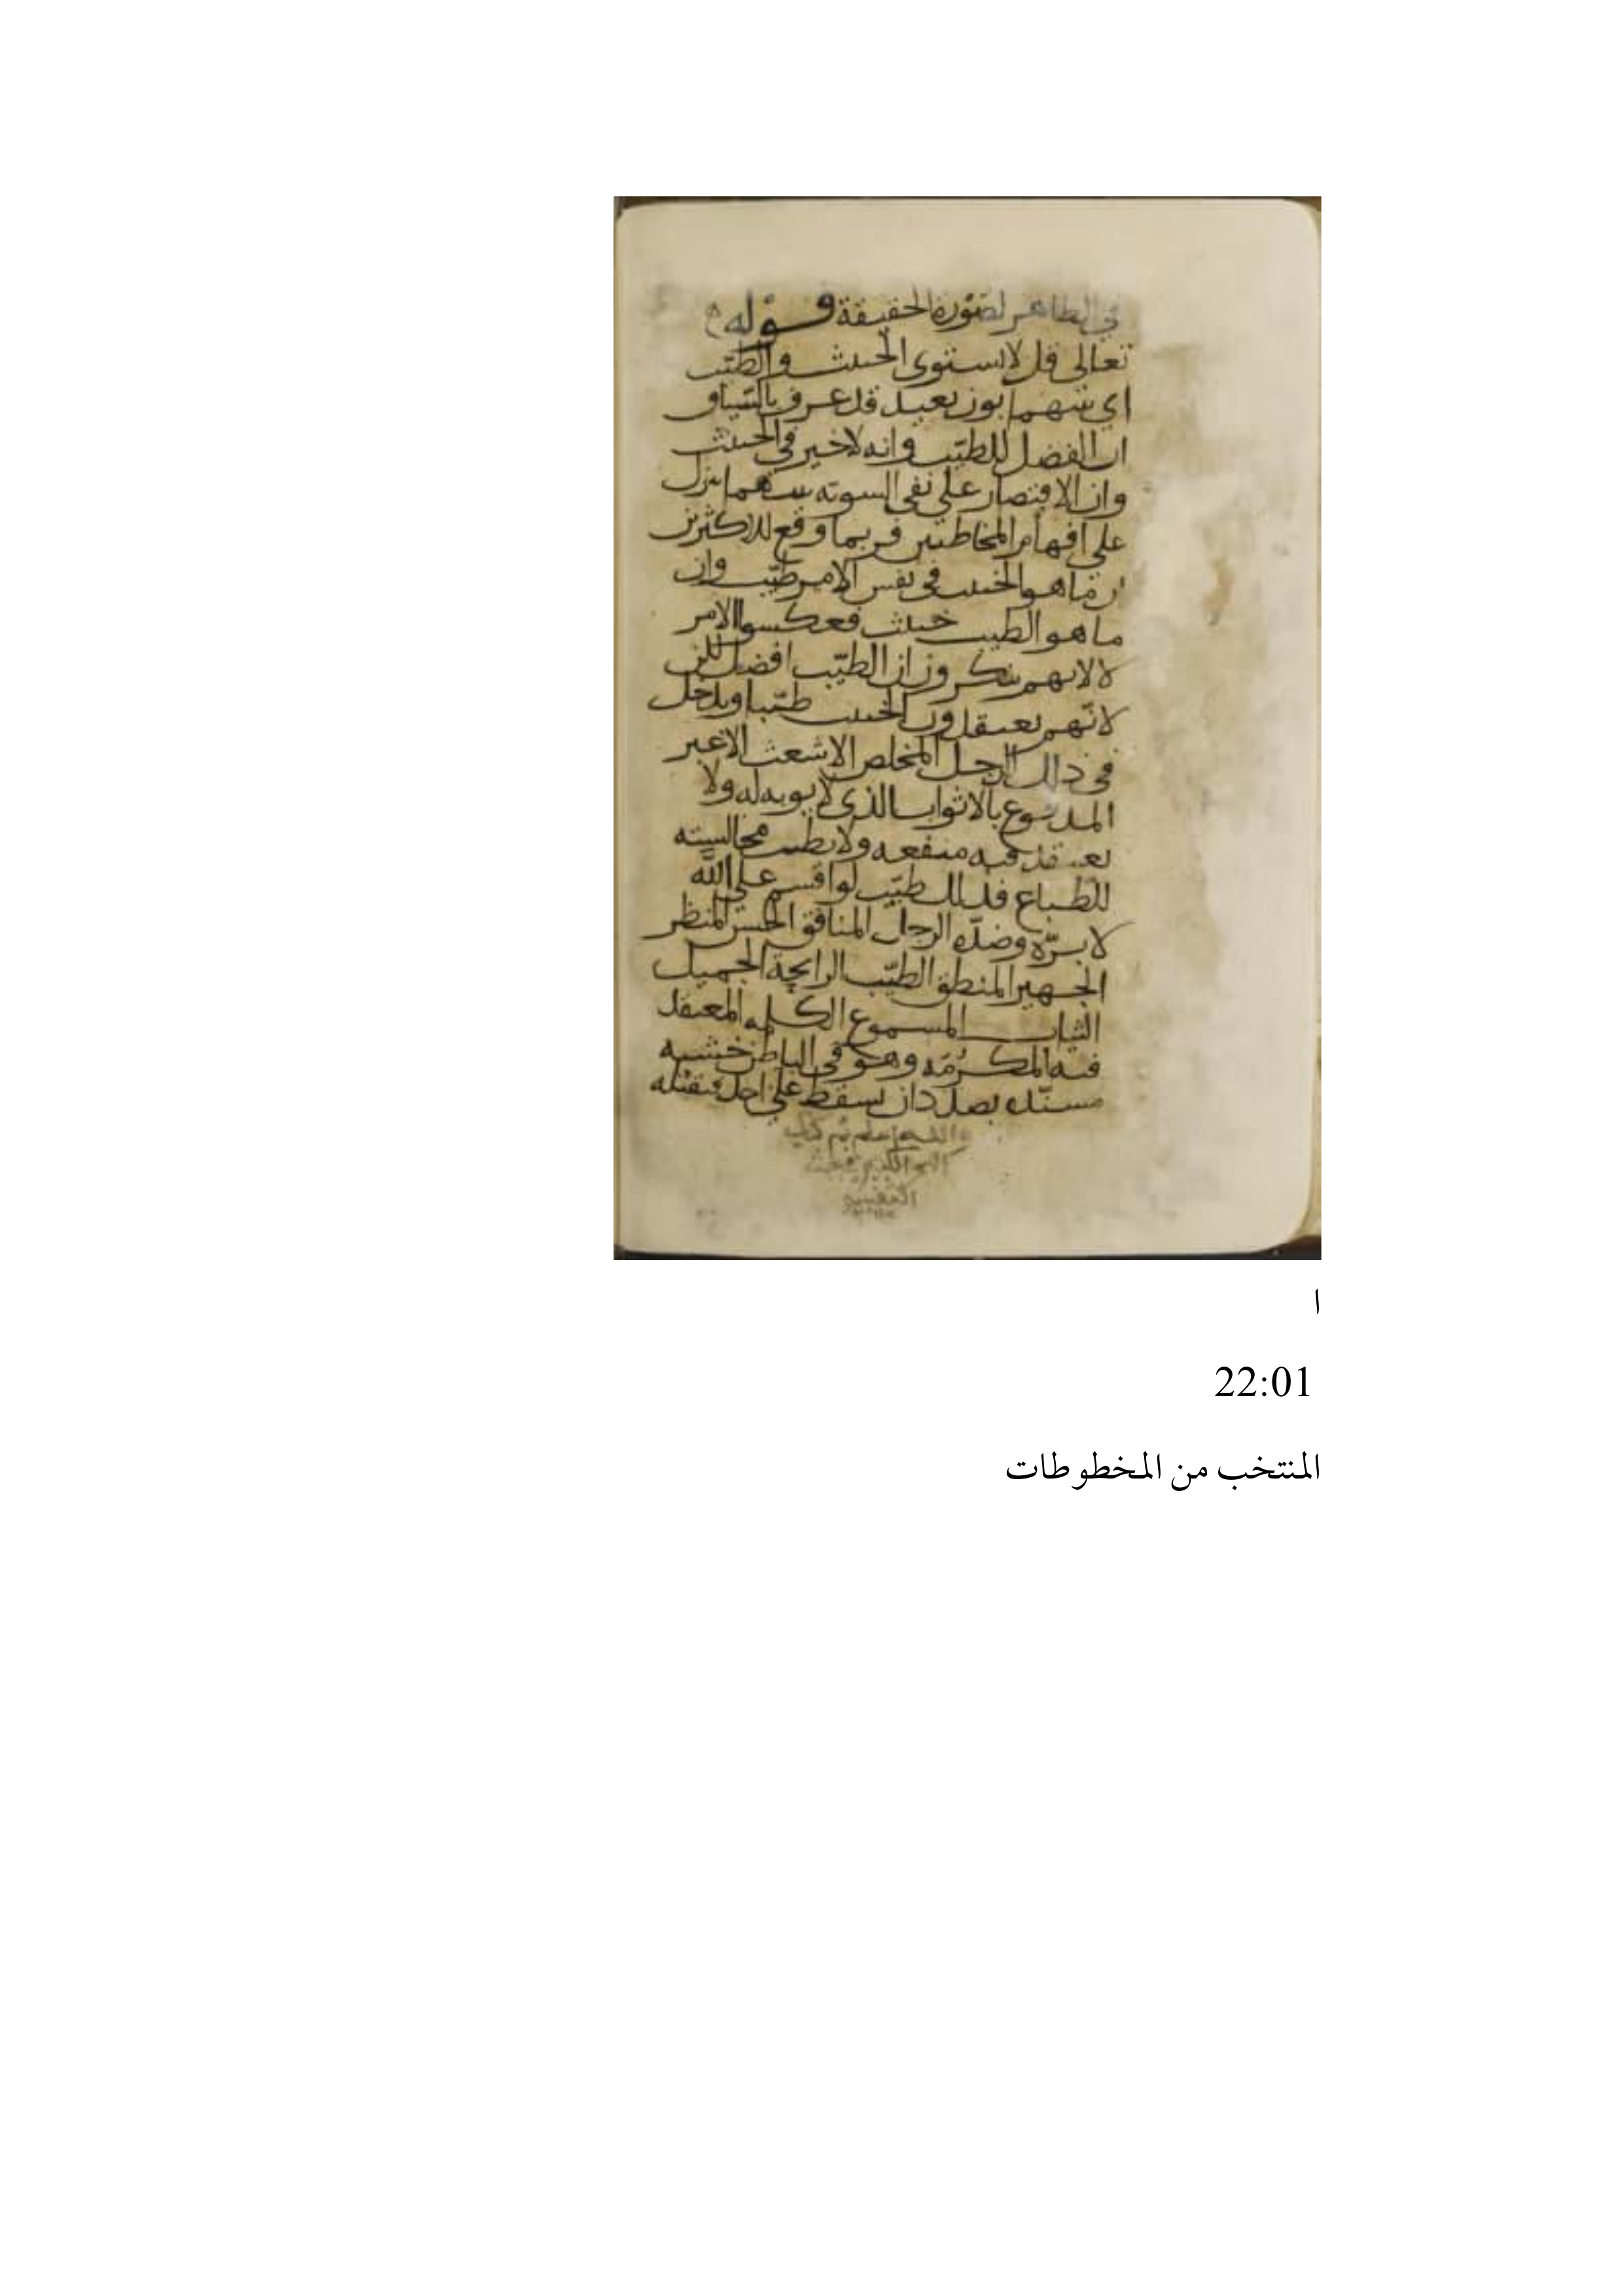 في الظاهر لصورة الحقيقة قوله
تعالى قل لا يستوي الخبيث والطيب
اي بينهما بون بعيد قد عرف بالسياق
ان الفضل للطيب وانه لا خير في الخبيث
وان الاقتصار على نفي السويه بينهما نزل
على افهام المخاطبين فربما وقع للاكثرين
ان ما هو الخبيث في نفس الامر طيب وان
ما هو الطيب خبيث فعكسوا الامر
لا لانهم ينكرون ان الطيب افضل لكن
لانهم يعتقدون الخبيث طيبا ويدخل
في ذلك الرجل المخلص الاشعث الاغبر
المدفوع بالابواب الذي لا يوبه له ولا
يعتقد فيه منفعه ولا تطيب مجالسته
للطباع فذلك طيب لو اقسم على الله
لابره وضده الرجل المنافق الحسن المنظر
الجهير المنطق الطيب الرايحة الجميل
الثياب المسموع الكلمه المعتقد
فيه المكرمه وهو في الباطن خشبه
مسنده بصدد ان يسقط على احد فيقتله
والله اعلم تم كتاب
ا
22:01
المنتخب من المخطوطات